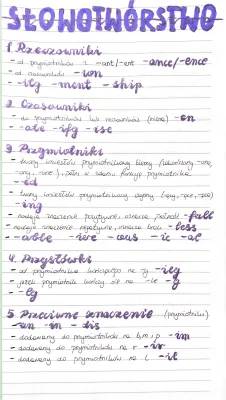 SŁOWOTWÓRSTWO
1. Rzeczowniki
- od przymiotników z -ant/-ent -ance/-ence
- od czasowników -ion
- -ity -ment -ship
2. Czasowniki
- do przymiotników lub rzeczowników -en
- -ate -ify -ise
3. Przymiotniki
- imiesłów przymiotnikowy bierny
- -ed
- imiesłów przymiotnikowy czynny
- -ing
- nadaje znaczenie pozytywne, oznacza -full
- nadaje znaczenie negatywne, oznacza brak -less
- -able -ive -ous -ic -al
4. Przysłówki
- od przymiotników kończących na -ily
- jeżeli przymiotnik kończy się na -le -y
- -ly
5. Przeciwne znaczenie (przymiotniki)
- un -in -dis
- dodawany do przymiotników na b, m, p -im
- dodawany do przymiotników na r -ir
- dodawany do przymiotników na l -il